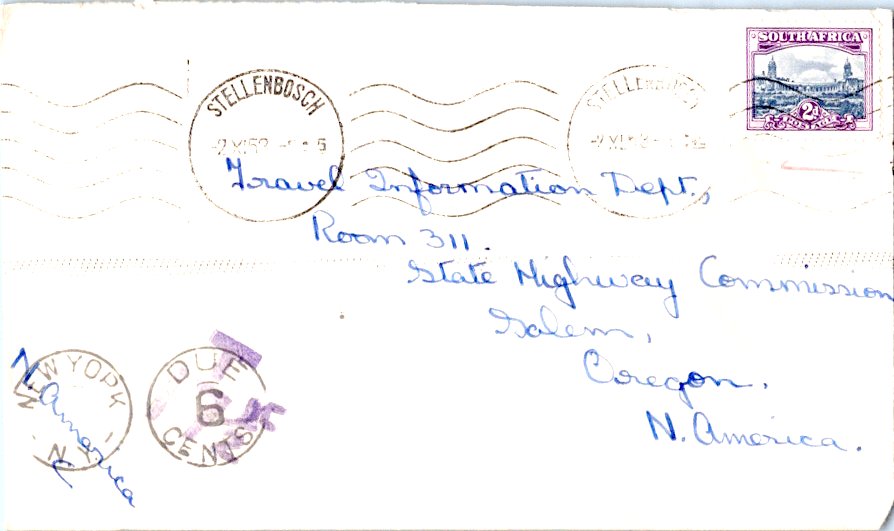 SOUTH AFRICA
2d
POSTAGE
STELLENBOSCH
STELLENBOSCH
Travel Information Dept.,
Room 311.
State Highway Commission
Salem,
Oregon.
N. America.
NEW YORK
N.Y.
N. America
DUE
6
CENTS